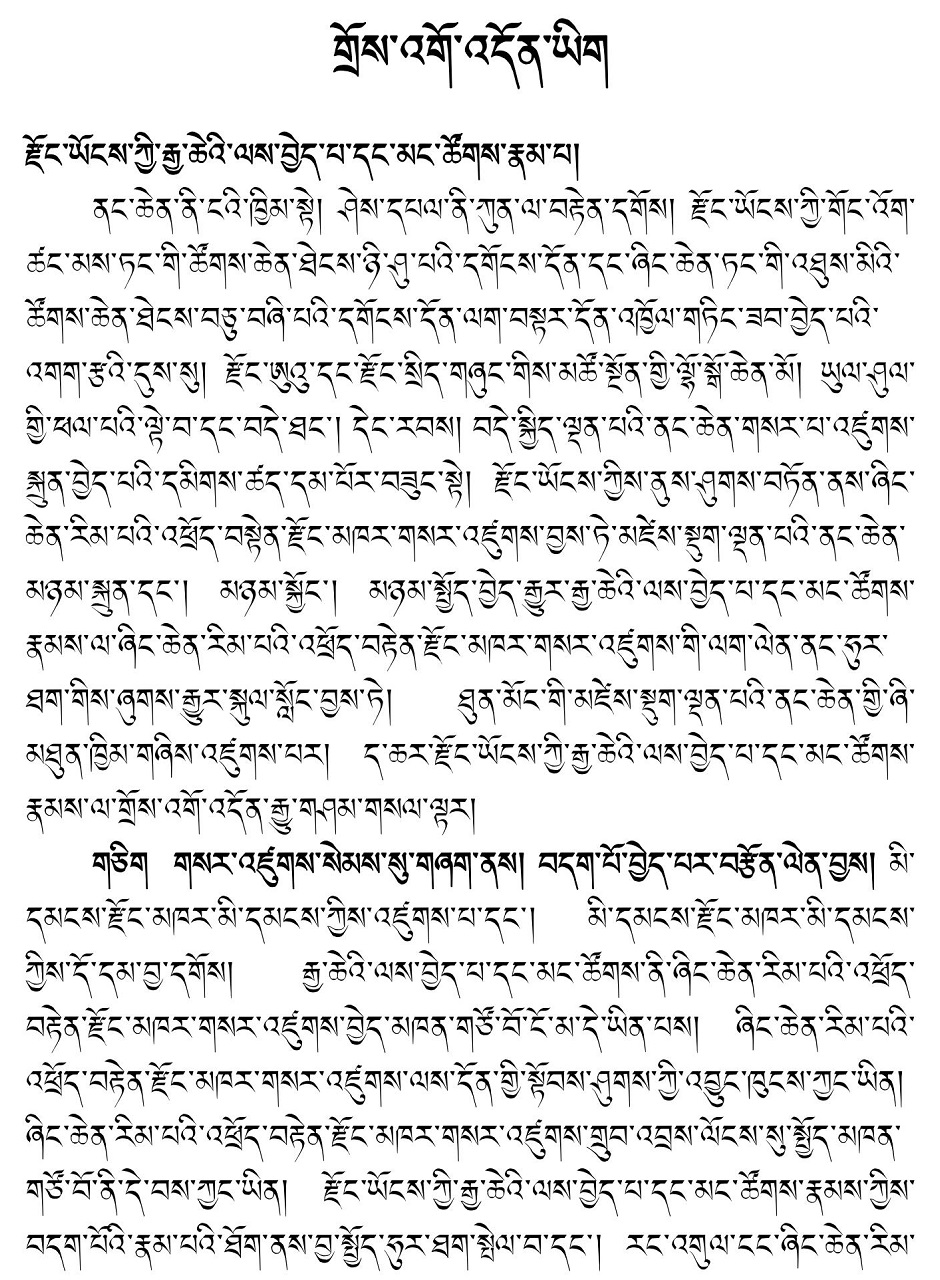 གྲོས་འགོ་འདོན་ཡིག
རྫོང་ཡོངས་ཀྱི་རྒྱ་ཆེའི་ལས་བྱེད་པ་དང་མང་ཚོགས་རྣམ་པ།
ནང་ཆེན་ནི་ངའི་ཁྱིམ་སྟེ། ཤེས་དཔལ་ནི་ཀུན་ལ་བརྟེན་དགོས། རྫོང་ཡོངས་ཀྱི་གོང་འོག་
ཚང་མས་ཏང་གི་ཚོགས་ཆེན་ཐེངས་ཉི་ཤུ་པའི་དགོངས་དོན་དང་ཞིང་ཆེན་ཏང་གི་འཐུས་མིའི་
ཚོགས་ཆེན་ཐེངས་བཅུ་བཞི་པའི་དགོངས་དོན་ལག་བསྟར་དོན་འཁྱོལ་གཏིང་ཟབ་བྱེད་པའི་
འགག་རྩའི་དུས་སུ། རྫོང་ཨུའུ་དང་རྫོང་སྲིད་གཞུང་གིས་མཚོ་སྔོན་གྱི་ལྷོ་སྒོ་ཆེན་མོ། ཡུལ་ཤུལ་
གྱི་ཕལ་པའི་ལྟེ་བ་དང་བདེ་ཐང་། དེང་རབས། བདེ་སྐྱིད་ལྡན་པའི་ནང་ཆེན་གསར་པ་འཛུགས་
སྐྲུན་བྱེད་པའི་དམིགས་ཚད་དམ་པོར་བཟུང་སྟེ། རྫོང་ཡོངས་ཀྱིས་ནུས་ཤུགས་བཏོན་ནས་ཞིང་
ཆེན་རིམ་པའི་འཕྲོད་བསྟེན་རྫོང་མཁར་གསར་འཛུགས་བྱས་ཏེ་མཛེས་སྡུག་ལྡན་པའི་ནང་ཆེན་
མཉམ་སྐྲུན་དང་། མཉམ་སྐྱོང་། མཉམ་སྤྱོད་བྱེད་རྒྱུར་རྒྱ་ཆེའི་ལས་བྱེད་པ་དང་མང་ཚོགས་
རྣམས་ལ་ཞིང་ཆེན་རིམ་པའི་འཕྲོད་བརྟེན་རྫོང་མཁར་གསར་འཛུགས་གི་ལག་ལེན་ནང་ཧུར་
ཐག་གིས་ཞུགས་རྒྱུར་སྐུལ་སློང་བྱས་ཏེ། ཐུན་མོང་གི་མཛེས་སྡུག་ལྡན་པའི་ནང་ཆེན་གྱི་ཞི་
མཐུན་ཁྱིམ་གཞིས་འཛུགས་པར། ད་ཆར་རྫོང་ཡོངས་ཀྱི་རྒྱ་ཆེའི་ལས་བྱེད་པ་དང་མང་ཚོགས་
རྣམས་ལ་གྲོས་འགོ་འདོན་རྒྱུ་གཤམ་གསལ་ལྟར།
གཅིག གསར་འཛུགས་སེམས་སུ་གཞག་ནས། བདག་པོ་བྱེད་པར་བརྩོན་ལེན་བྱས། མི་
དམངས་རྫོང་མཁར་མི་དམངས་ཀྱིས་འཛུགས་པ་དང་། མི་དམངས་རྫོང་མཁར་མི་དམངས་
ཀྱིས་དོ་དམ་བྱ་དགོས། རྒྱ་ཆེའི་ལས་བྱེད་པ་དང་མང་ཚོགས་ནི་ཞིང་ཆེན་རིམ་པའི་འཕྲོད་
བརྟེན་རྫོང་མཁར་གསར་འཛུགས་བྱེད་མཁན་གཙོ་བོ་ངོ་མ་དེ་ཡིན་པས། ཞིང་ཆེན་རིམ་པའི་
འཕྲོད་བརྟེན་རྫོང་མཁར་གསར་འཛུགས་ལས་དོན་གྱི་སྟོབས་ཤུགས་ཀྱི་འབྱུང་ཁུངས་ཀྱང་ཡིན།
ཞིང་ཆེན་རིམ་པའི་འཕྲོད་བརྟེན་རྫོང་མཁར་གསར་འཛུགས་གྲུབ་འབྲས་ལོངས་སུ་སྤྱོད་མཁན་
གཙོ་བོ་ནི་དེ་བས་ཀྱང་ཡིན། རྫོང་ཡོངས་ཀྱི་རྒྱ་ཆེའི་ལས་བྱེད་པ་དང་མང་ཚོགས་རྣམས་ཀྱིས་
བདག་པོའི་རྣམ་པའི་ཐོག་ནས་བྱ་སྤྱོད་ཧུར་ཐག་སྤེལ་བ་དང་། རང་འགུལ་ངང་ཞིང་ཆེན་རིམ་